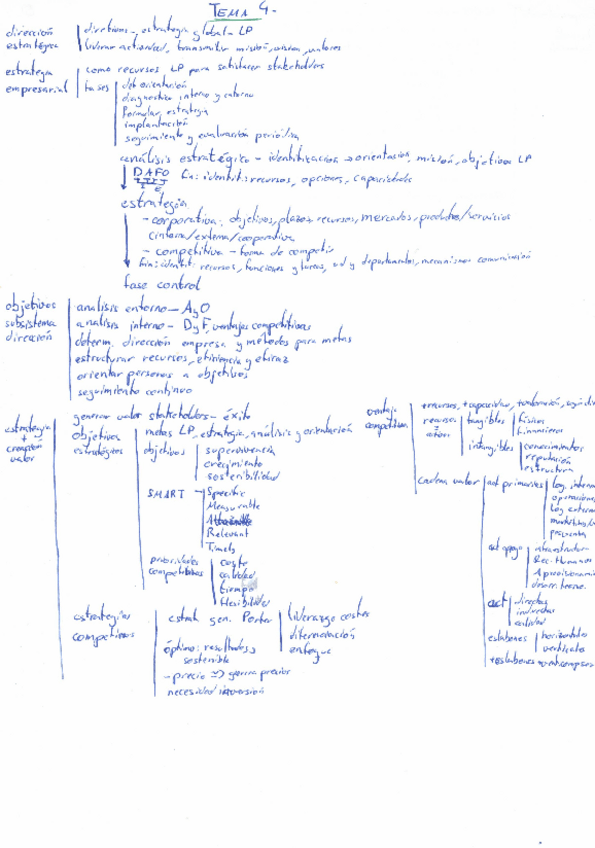 TEMA 4.
dirección estratégica
directivos - estrategia global - LP
liderar actividad, transmitir misión, visión, valores
estrategia empresarial
como recursos LP para satisfacer stakeholders
fases
det orientación
diagnóstico interno y entorno
formular estrategia
implantación
seguimiento y evaluación periódica
análisis estratégico - identificación orientación, misión, objetivos LP
DAFO
identif: recursos, opciones, capacidades
estrategia
- corporativa: objetivos, plazos, recursos, mercados, productos/servicios
interna/externa/cooperativa
- competitiva - forma de competir
identif: recursos, funciones y tareas, ud y departamentos, mecanismos comunicación
fase control
objetivos subsistema dirección
analisis entorno - AyO
analisis interno - DyF, ventajas competitivas
determ. dirección empresa y métodos para metas
estructurar recursos, eficiencia y eficaz
orientar personas a objetivos
seguimiento continuo
estrategia + creación valor
generar valor stakeholders - éxito
objetivos estratégicos
metas LP, estrategia, análisis y orientación
objetivos
supervivencia
crecimiento
sostenibilidad
SMART
Specific
Measurable
Relevant
Timely
prioridades competitivas
coste
calidad
tiempo
flexibilidad
estrategias competitivas
estrat gen. Porter
liderazgo costes
diferenciación
enfoque
óptimo: resultados
sostenible
- precio => guerra precios
necesidad inversión
ventaja competitiva
+ recursos, + capacidad, + orientación,
recursos
tangibles
físicos
financieros
intangibles
conocimientos
reputación
estructura
cadena valor
act primarias
log. interna
operaciones
log externa
postventa
act apoyo
Rec. Humanos
Aprovisionami
desarr tecno.
act
directas
indirectas
calidad
eslabones
horizontales
verticales